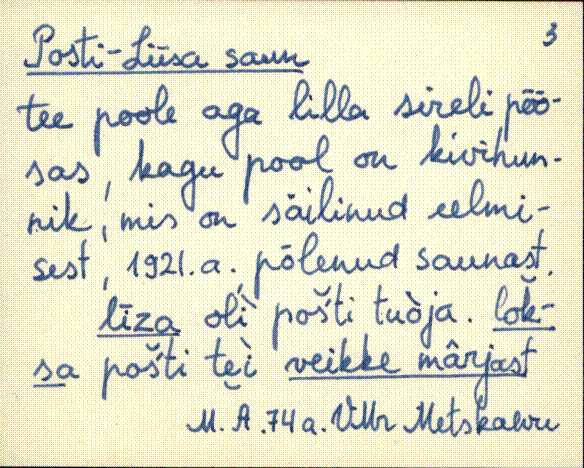 3
Posti-Liisa saun
tee poole aga lilla sireli põõ-
sas, kagu pool on kivihun-
nik, mis on säilinud eelmi-
sest, 1921.a., põlenud saunast.
līza olì̬ pošti tuòja. lok̆-
sa pošti te̮ì veikke mârjast
M. A. 74 a. VMr Metskalvu